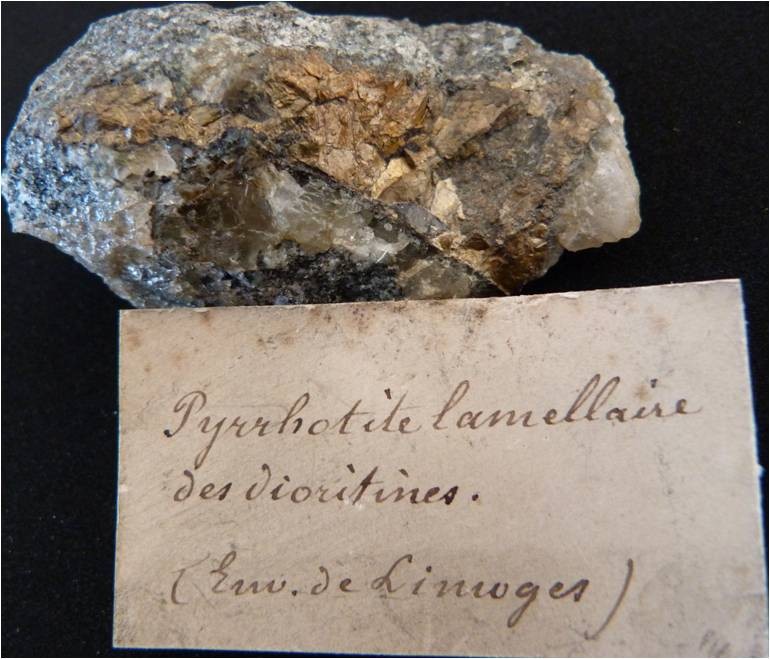 Pyrrhotite lamellaire
des dioritines.
(Env. de Limoges)